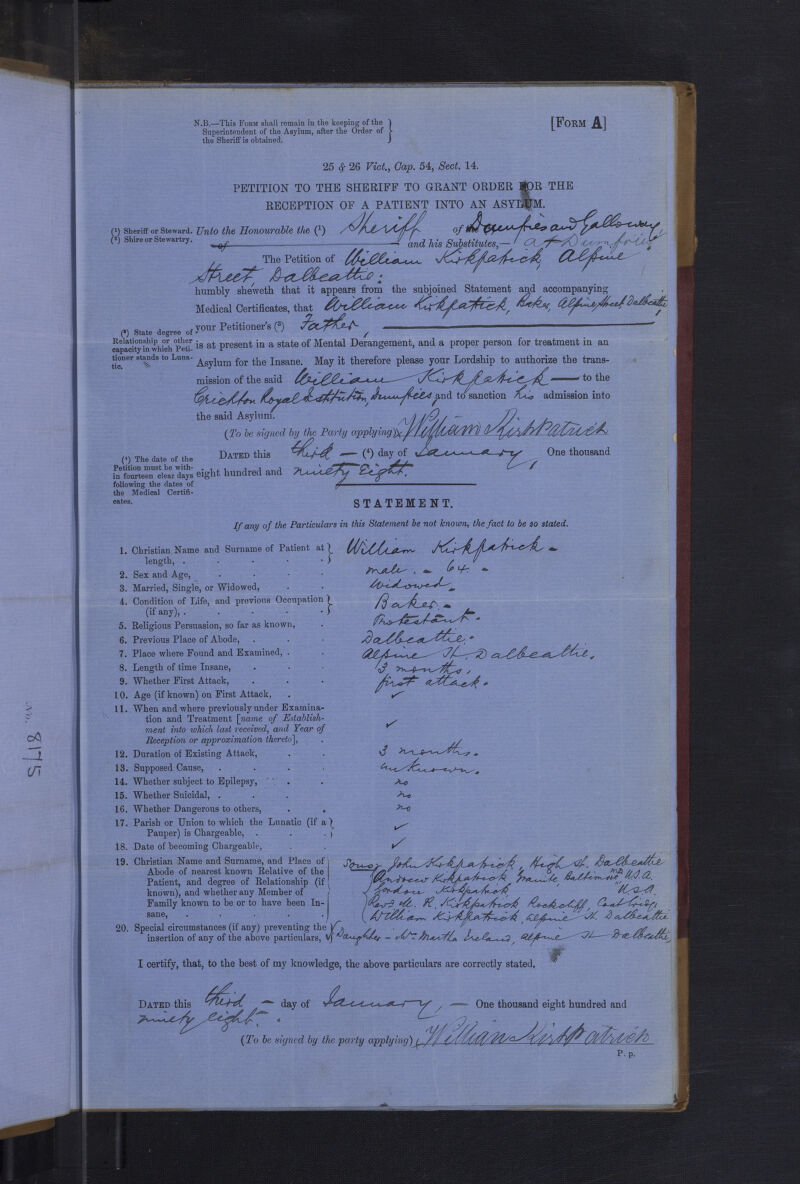 N.B.—This Form shall remain in the keeping of the
Superintendent of the Asylum, after the Order of
the Sheriff is obtained.
[Form A]
25 & 26 Vict., Cap. 54, Sect. 14.
PETITION TO THE SHERIFF TO GRANT ORDER FOR THE
RECEPTION OF A PATIENT INTO AN ASYLUM.
(1) Sheriff or Steward.
(2) Shire or Stewartry.
Unto the Honourable the (1) Sheriff of Dumfries and Galloway,
of and his Substitutes,— at Dumfries
The Petition of William Kirkpatrick, Alpine
Street, Dalbeattie:
humbly sheweth that it appears from the subjoined Statement and accompanying
Medical Certificates, that William Kirkpatrick, Baker, Alpine Street Dalbeattie,
(3) State degree of
Relationship or other
capacity in which Peti-
tioner stands to Luna-
tic.
your Petitioner's (3) Father,
is at present in a state of Mental Derangement, and a proper person for treatment in an
Asylum for the Insane. May it therefore please your Lordship to authorize the trans-
mission of the said William Kirkpatrick — to the
Crichton Royal Institution, Dumfries, and to sanction his admission into
the said Asylum.
(To be signed by the Party applying) William Kirkpatrick
(4) The date of the
Petition must be with-
in fourteen clear days
following the dates of
the Medical Certifi-
cates.
Dated this third — (4) day of January, One thousand
eight hundred and ninety Eight.
STATEMENT.
If any of the Particulars in this Statement be not known, the fact to be so stated.
1. Christian Name and Surname of Patient at
length, . William Kirkpatrick -
2. Sex and Age, male. - 64. -
3. Married, Single, or Widowed, Widowed.
4. Condition of Life, and previous Occupation
(if any), . Baker. -
5. Religious Persuasion, so far as known, Protestant.
6. Previous Place of Abode, Dalbeattie.
7. Place where Found and Examined, . Alpine St. Dalbeattie.
8. Length of time Insane, 3 months.
9. Whether First Attack, first attack.
10. Age (if known) on First Attack, ✓
11. When and where previously under Examina-
tion and Treatment [name of Establish-
ment into which last received, and Year of
Reception or approximation thereto], ✓
12. Duration of Existing Attack, 3 months.
13. Supposed Cause, unknown.
14. Whether subject to Epilepsy, no
15. Whether Suicidal, no
16. Whether Dangerous to others, no
17. Parish or Union to which the Lunatic (if a
Pauper) is Chargeable, ✓
18. Date of becoming Chargeable, ✓
19. Christian Name and Surname, and Place of
Abode of nearest known Relative of the
Patient, and degree of Relationship (if
known), and whether any Member of
Family known to be or to have been In-
sane,
Sons; John Kirkpatrick, High St. Dalbeattie
Andrew Kirkpatrick, Baltimore U.S.A.
Gordon Kirkpatrick U.S.A.
Revd. M. R. Kirkpatrick Rockcliff, Coatbridge
William Kirkpatrick, Alpine St Dalbeattie
20. Special circumstances (if any) preventing the
insertion of any of the above particulars,
Daughter - Mrs Martha Ireland, Alpine St Dalbeattie
I certify, that, to the best of my knowledge, the above particulars are correctly stated.
Dated this third — day of January, — One thousand eight hundred and
ninety eight.
(To be signed by the party applying) William Kirkpatrick
P. p.
No. 8175